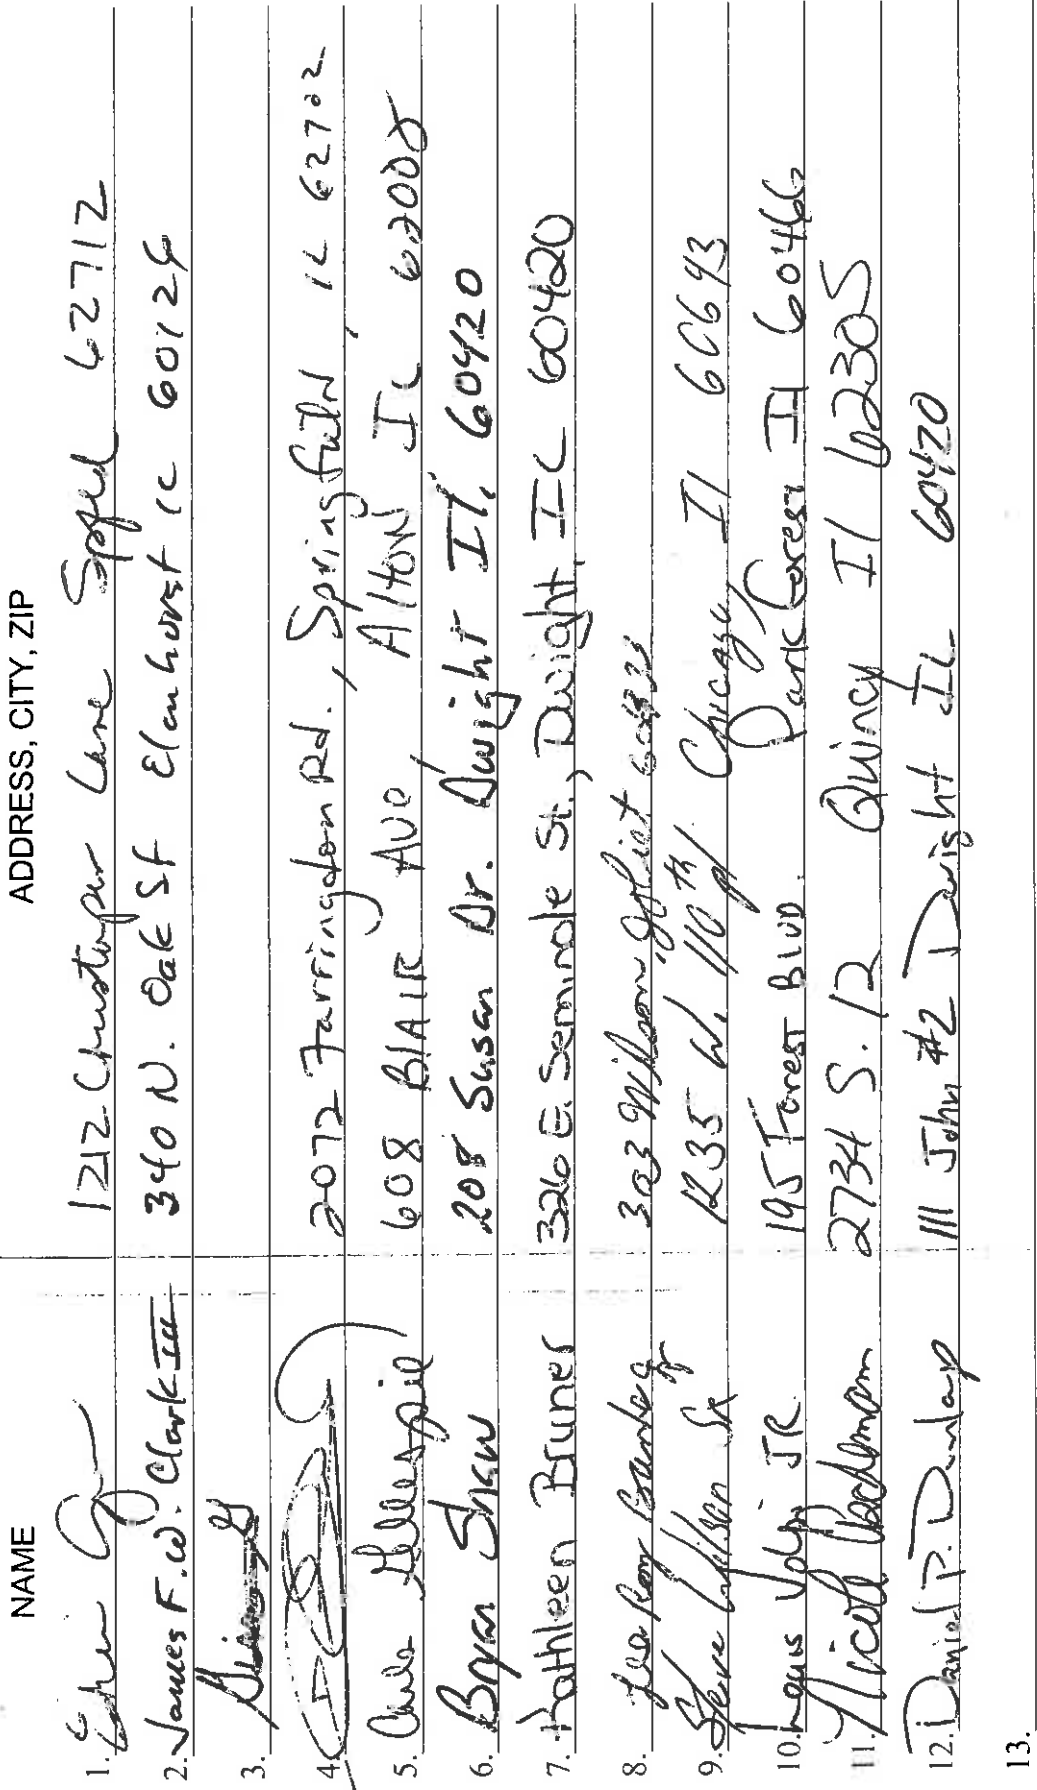 NAME ADDRESS, CITY, ZIP
1. 1212 Christopher Lane Spfld 62712
2. James F. W. Clark III 340 N. Oak St Elmhurst IL 60126
3.
4. 2072 Farringdon Rd., Springfield, IL 62702
5. Carla Gillespie 608 BLAIR AVE Alton IL 62002
6. Bryan Shaw 208 Susan Dr. Dwight Il. 60420
7. Kathleen Bruner 326 E. Seminole St., Dwight, IL 60420
8. 303 Wilson Joliet
9. Steve Wilson Sr 1235 W. 110th Pl. Chicago Il 60643
10. Louis Volpi JR. 195 Forest BLVD. Park Forest Il 60466
11. Nicole 2734 S. 12 Quincy Il 62305
12. Daniel P. Dunlap 111 John #2 Dwight IL 60420
13.